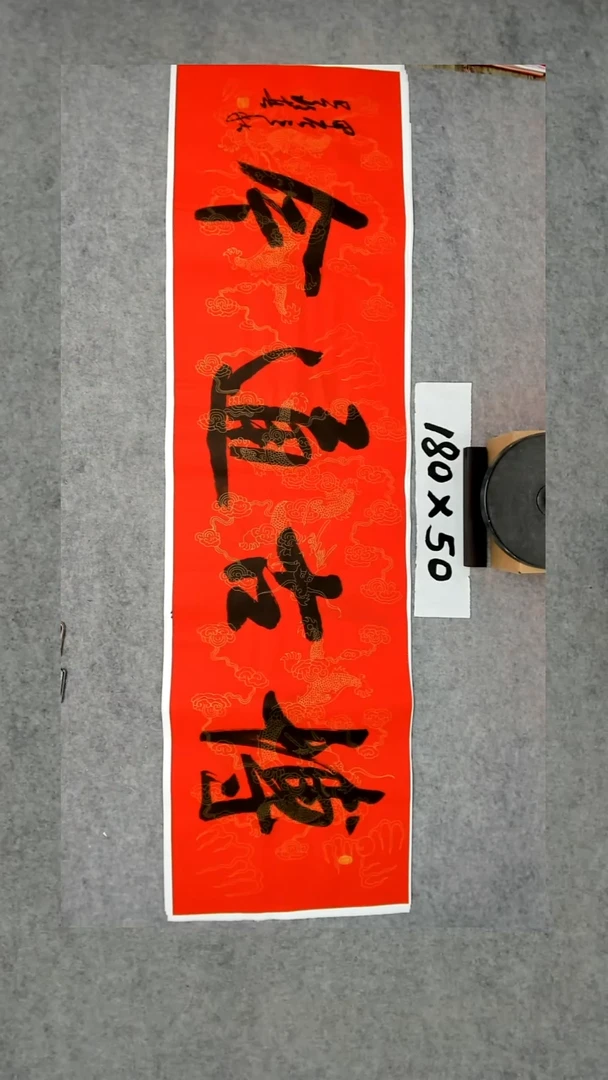 博古通今
180×50